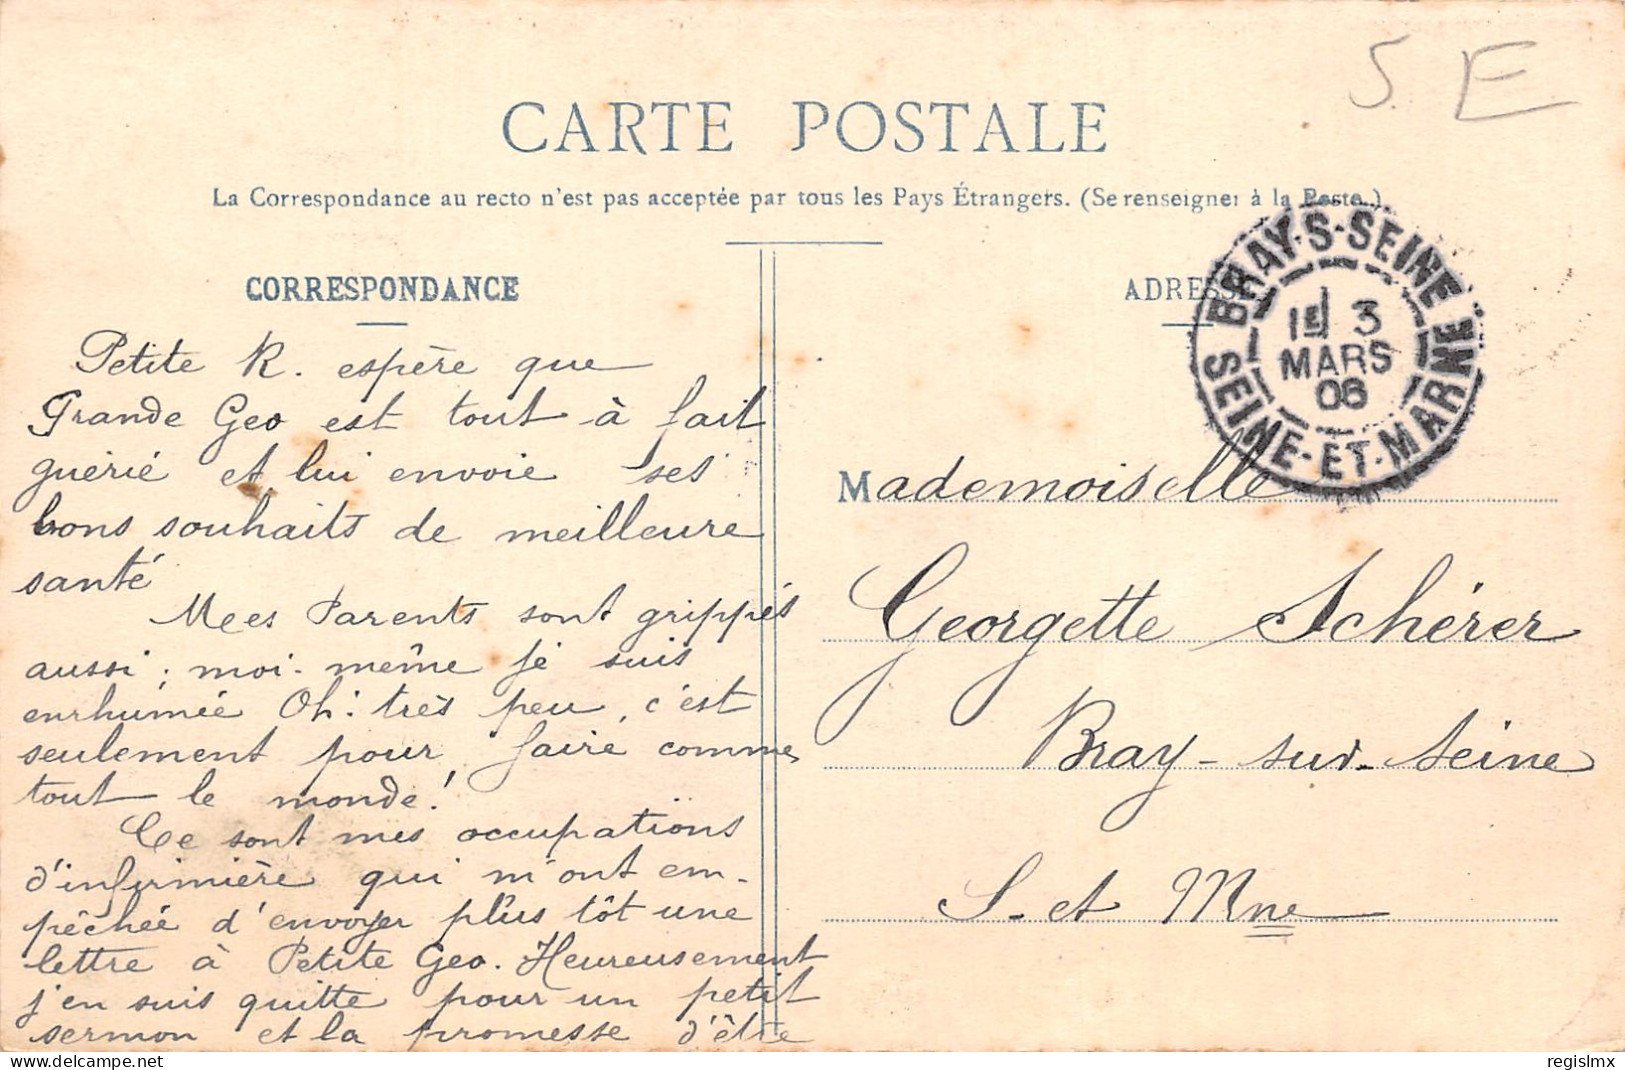 S. E
CARTE POSTALE
La Correspondance au recto n'est pas acceptée par tous les Pays Étrangers. (Se renseigner à la Poste.)
CORRESPONDANCE
Petite R. espère que
Grande Geo est tout à fait
guérie et lui envoie ses
bons souhaits de meilleure
santé
Mees Parents sont grippés
aussi ; moi-même je suis
enrhumée Oh! très peu, c'est
seulement pour faire comme
tout le monde!
Ce sont mes occupations
d'infirmière qui m'ont em-
pêchée d'envoyer plus tôt une
lettre à Petite Geo. Heureusement
j'en suis quitte pour un petit
sermon et la promesse d'être
ADRESSE
BRAY-S-SEINE
1E 3
MARS
06
SEINE-ET-MARNE
Mademoiselle
Georgette Schérer
Bray-sur-Seine
S-et Mne
delcampe.net
regislmx